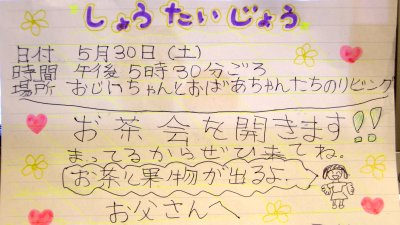 しょうたいじょう
日付 5月30日(土)
時間 午後5時30分ごろ
場所 おじいちゃんとおばあちゃんたちのリビング
お茶会を開きます!!
まってるからぜひ来てね。
お茶と果物が出るよ.
お父さんへ